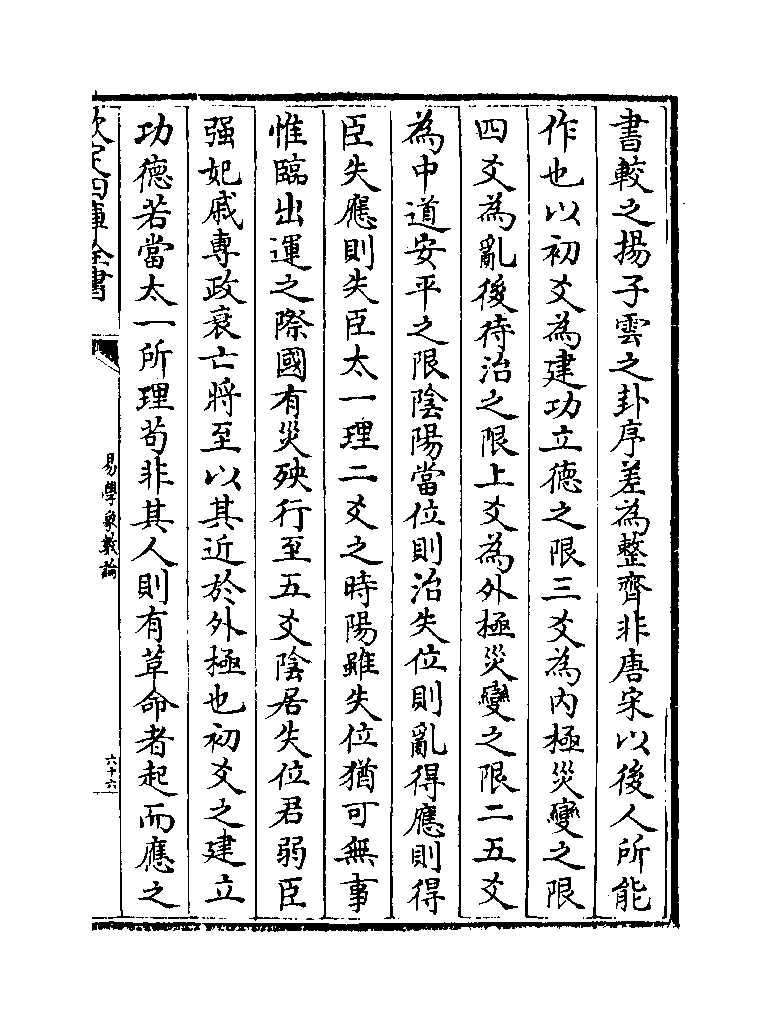 書較之揚子雲之卦序差為整齊非唐宋以後人所能
作也以初爻為建功立德之限三爻為內極災變之限
四爻為亂後待治之限上爻為外極災變之限二五爻
為中道安平之限陰陽當位則治失位則亂得應則得
臣失應則失臣太一理二爻之時陽雖失位猶可無事
惟臨出運之際國有災殃行至五爻陰居失位君弱臣
强妃戚專政衰亡將至以其近於外極也初爻之建立
功德若當太一所理茍非其人則有草命者起而應之
欽定四庫全書
易學象數論
六十六